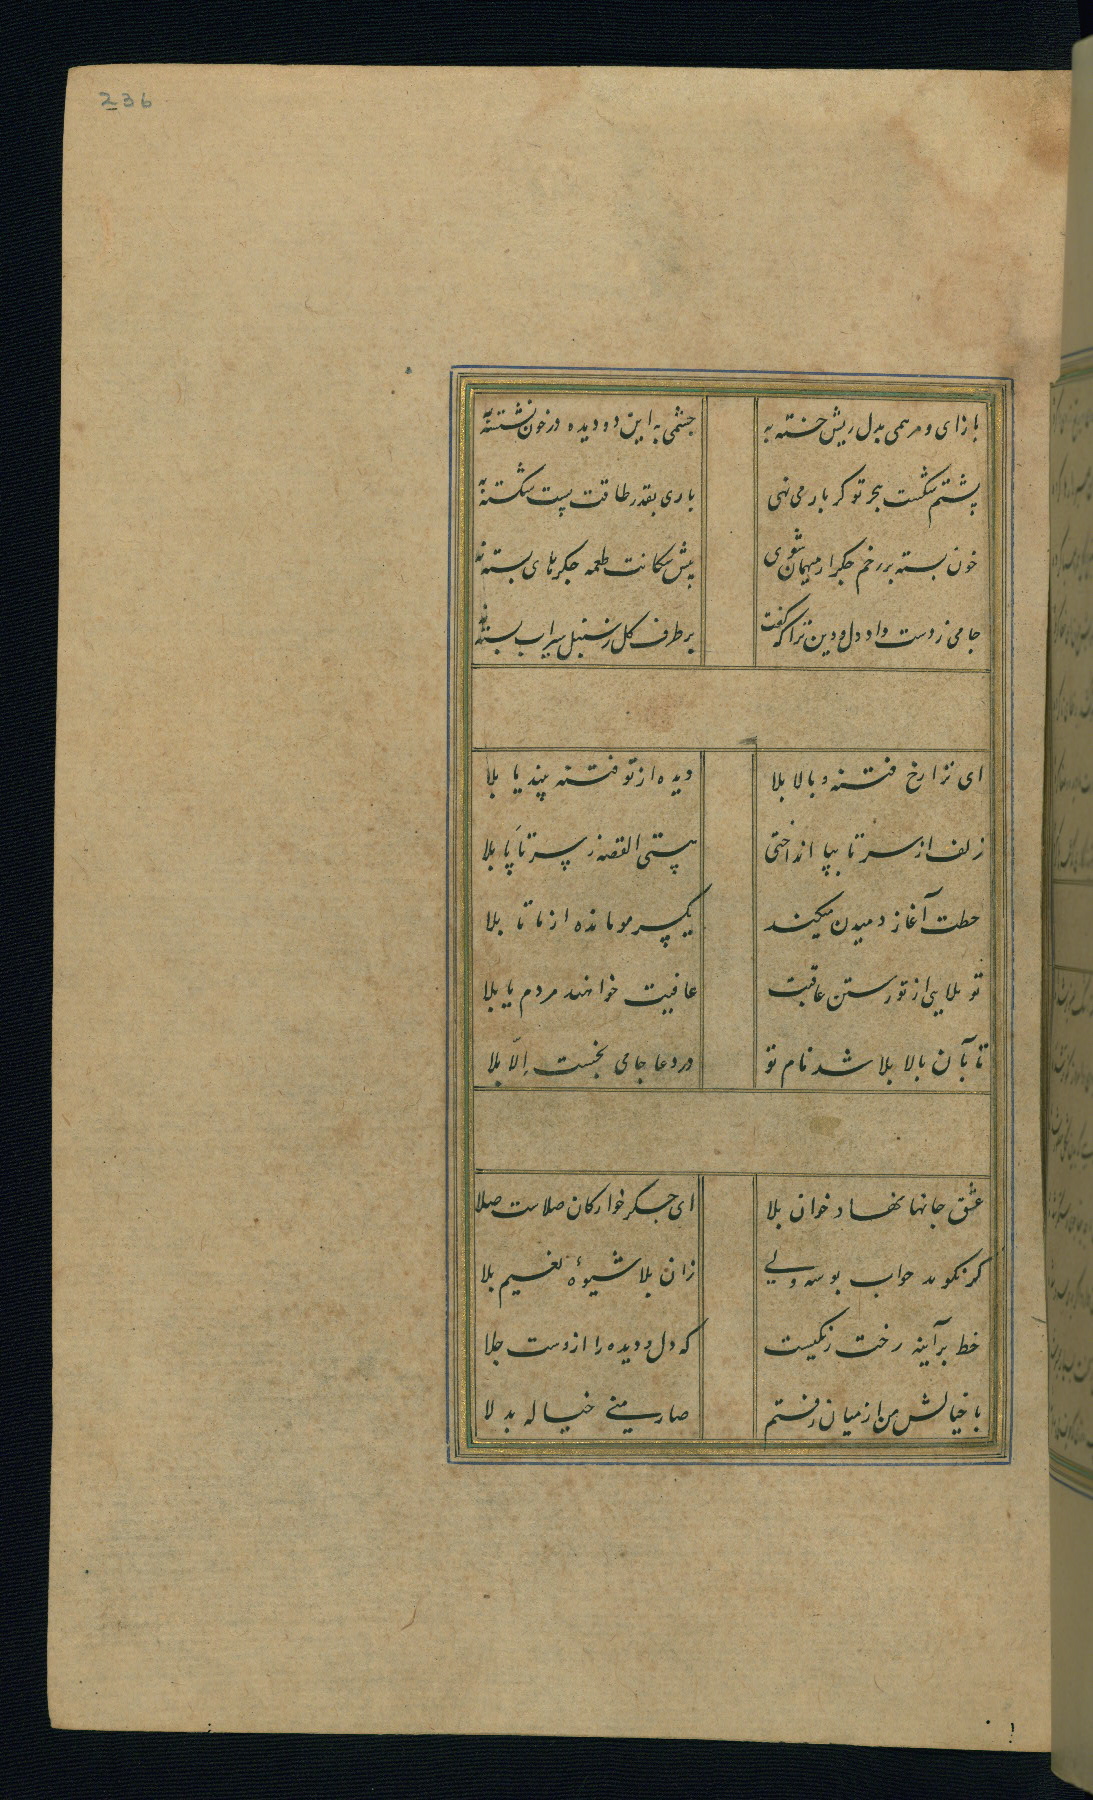 236
بازای و مرهمی بدل ریش خسته به چشمی به این دو دیده در خون نشسته نه
پشتم شکست هجر تو کر بار می نهی باری بقدر طاقت پست شکسته نه
خون بسته بر زخم جکر ار میهمان شوی پیش سکانت طعمه جکرهای بسته نه
جامی ز دست داد دل و دین ترا که گفت بر طرف کل ز سنبل سیراب بسته نه
ای ترا رخ فتنه و بالا بلا دیده از تو فتنه بیند یا بلا
زلف از سر تا بپا انداختی هستی القصه ز سر تا پا بلا
خطت آغاز دمیدن میکند یکسر مو مانده از ما تا بلا
تو بلایی از تو رستن عاقبت عافیت خواهند مردم یا بلا
تا بآن بالا بلا شد نام تو در دعا جامی نجست إلّا بلا
عشق جانها نهاد خوان بلا ای جکر خوارکان صلاست صلا
کر نکوید جواب بوسه ولی زان بلا شیوهٔ نعیم بلا
خط بر آینه رخت زنکیست که دل و دیده را ازوست جلا
با خیالش من از میان رفتم صار منی خیاله بدلا